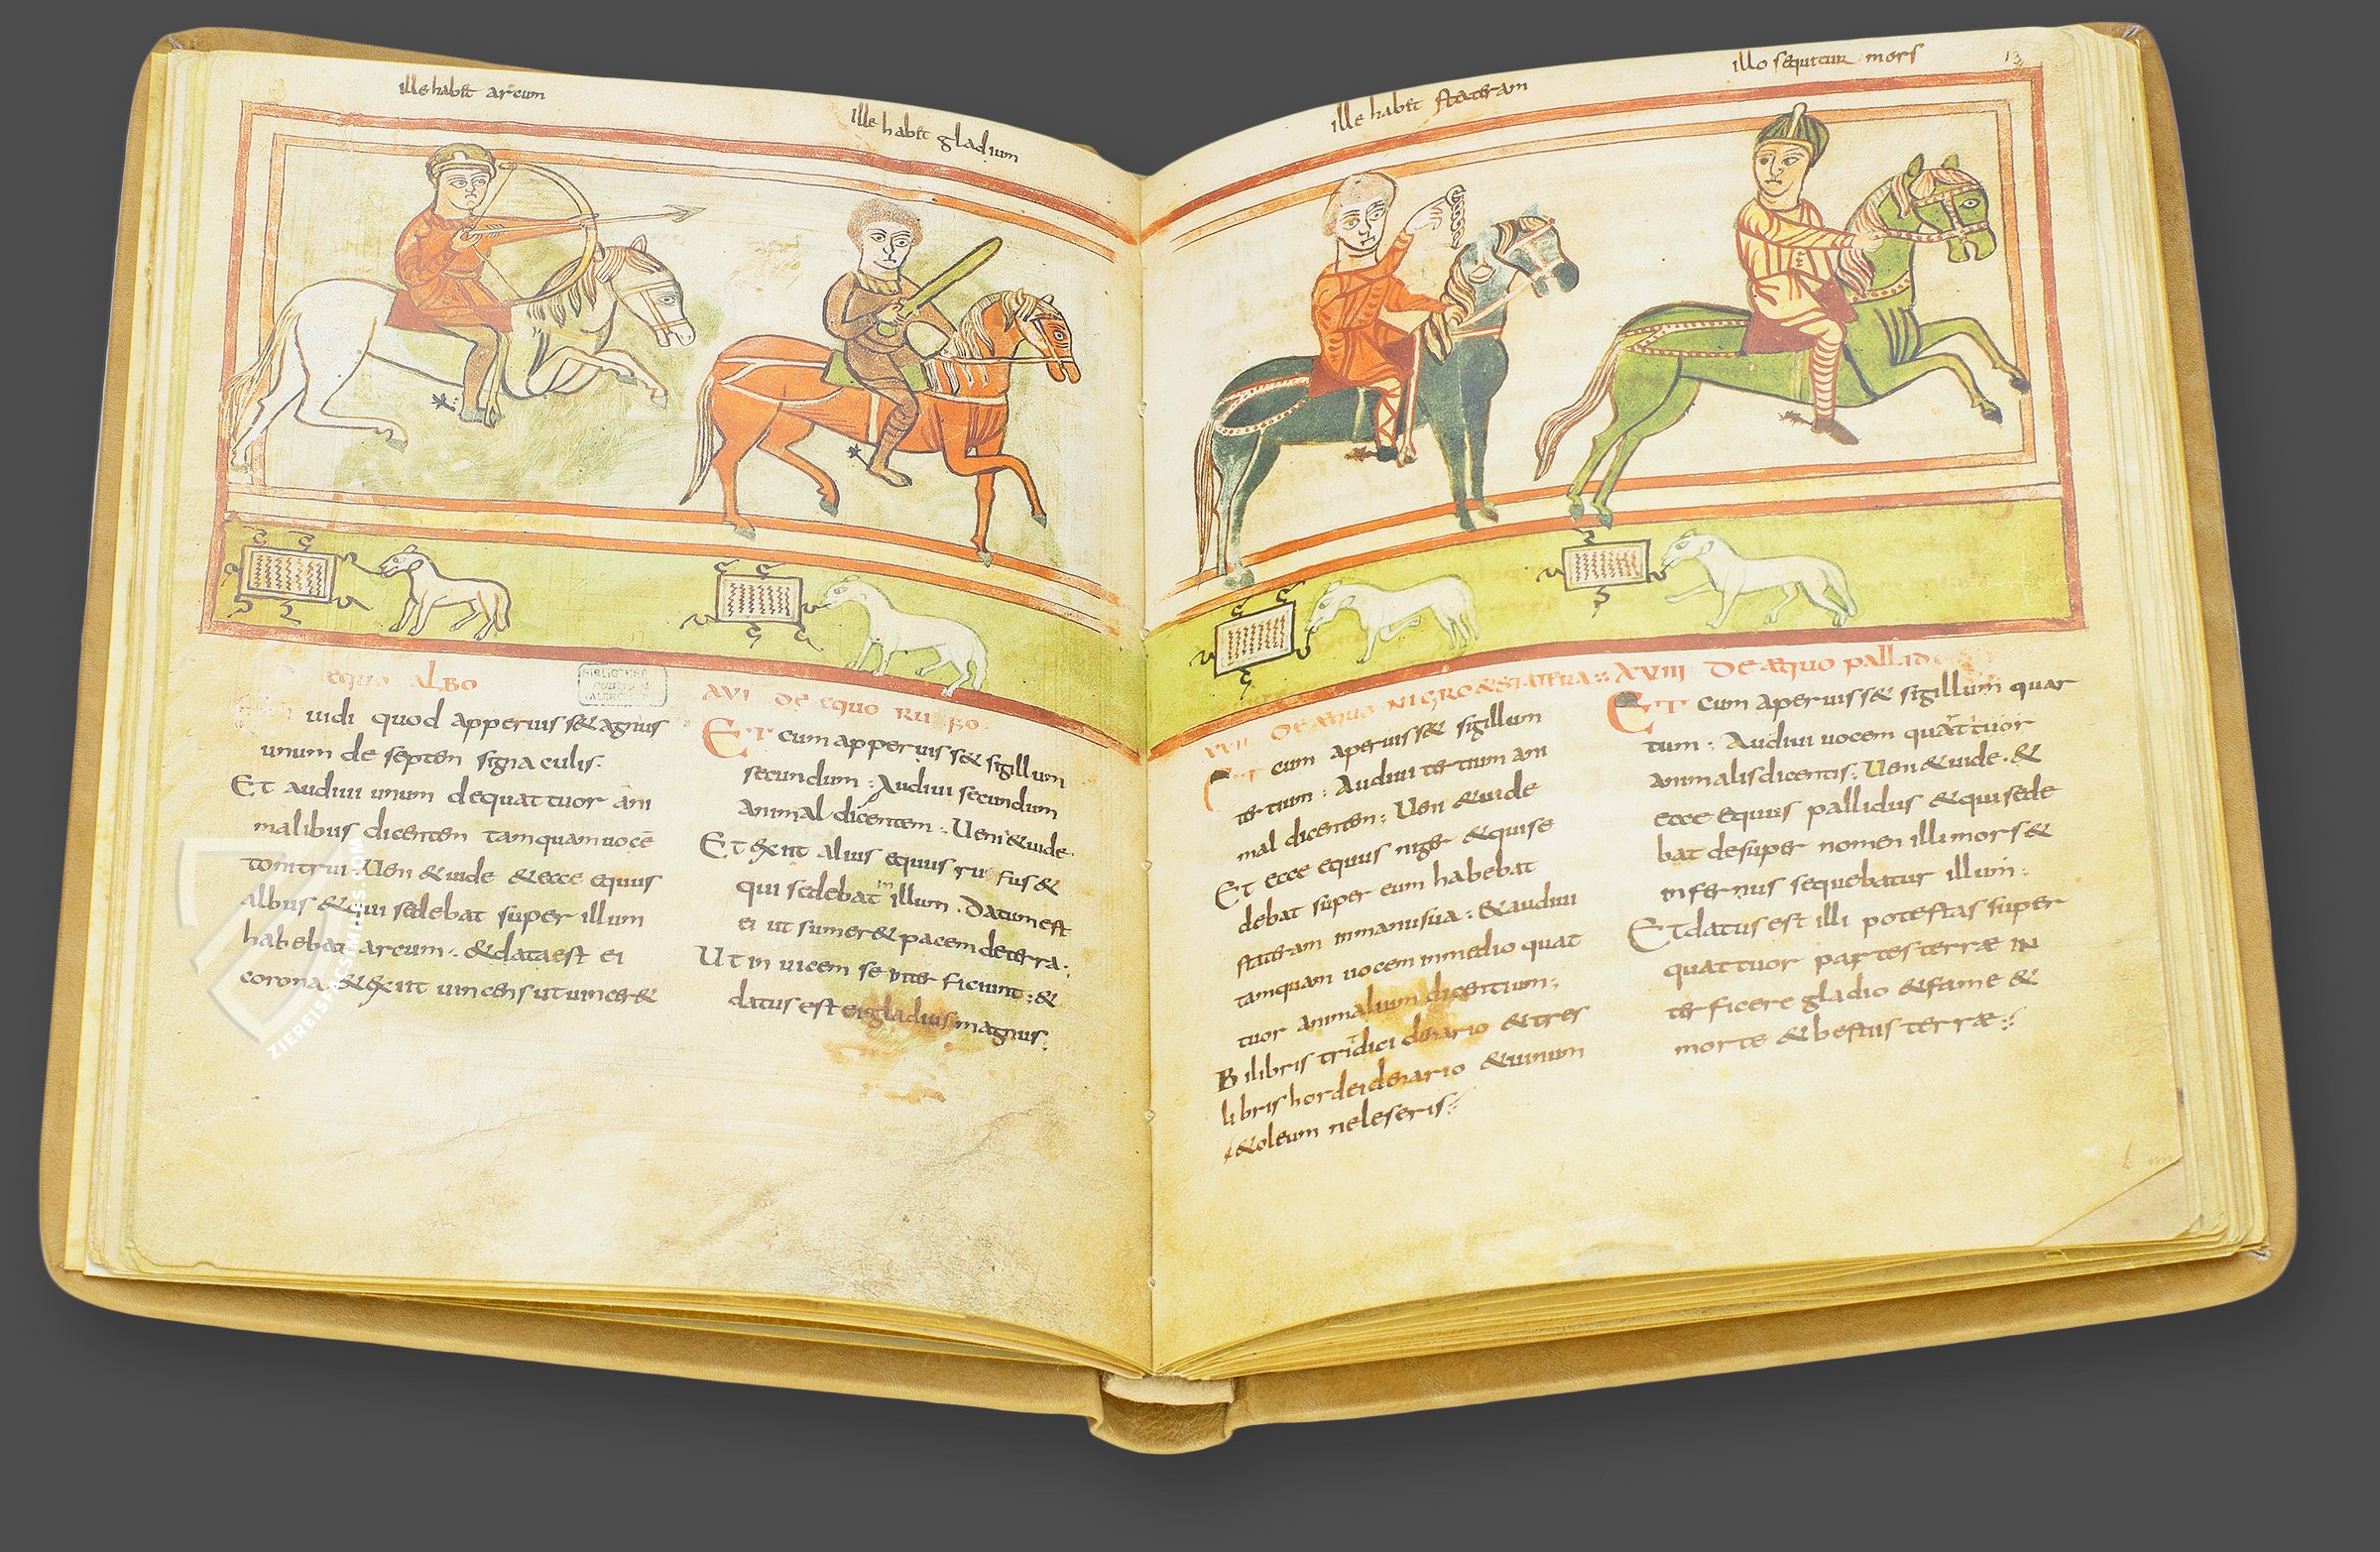 ille habet arcum
ille habet gladium
equo albo
uidi quod apperuiss& agnus
unum de septem signaculis.
Et audiui unum dequattuor ani
malibus dicentem tamquam uocē
tonitrui. Ueni & uide &ecce equus
albus &qui sedebat super illum
habebat arcum. &data est ei
corona &exiit uincens ut uincer&
BIBLIOTHE
XVI DE equo RUFO.
ET cum apperuiss& sigillum
secundum: Audiui secundum
animal dicentem: Ueni &uide.
Et exiit alius equus rufus &
qui sedebat in illum. Datum est
ei ut sumer& pacem deterra:
Ut in uicem se inter ficiunt: &
datus est ei gladius magnus:
ille habet stateram
illo sequitur mors
13
XVII DE aequo NIGRO & STATERA:
Et cum aperuiss& sigillum
tertium: Audiui tertium ani
mal dicentem: Ueni &uide
Et ecce equus niger &quise
debat super eum habebat
stateram inmanusua: &audiui
tamquam uocem inmedio quat
tuor animalium dicentium:
Bilibris tridici denario &tres
libris hordei denario &uinum
&oleum neleseris:
XVIII DE aequo pallido
ET cum aperuiss& sigillum quar
tum: Audiui uocem quattuor
animalis dicentis: Ueni &uide. &
ecce equus pallidus &quisede
bat desuper nomen illi mors &
infernus sequebatur illum:
Et datus est illi potestas super
quattuor partes terrae IN
terficere gladio &fame &
morte &bestiis terrae:
ZIEREISFACSIMILES.COM